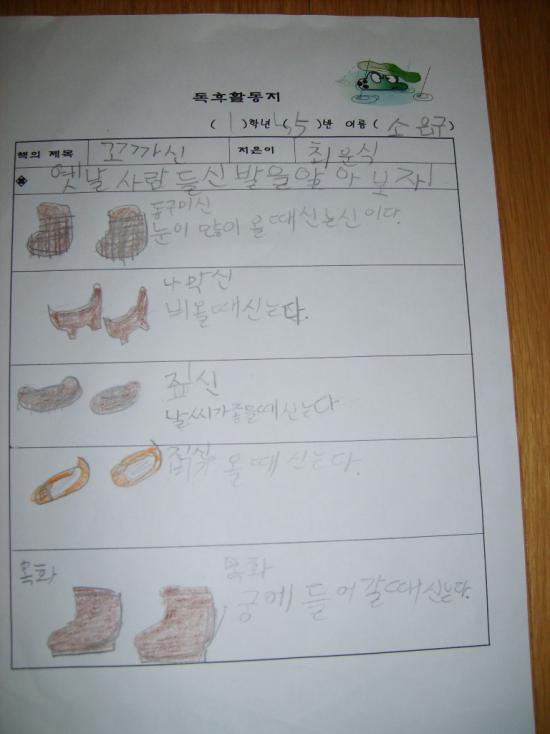 독후활동지
( 1 )학년 ( 5 )반 이름 ( 소은규 )
책의 제목 꼬까신 지은이 최운식
※ 옛날 사람들 신발을 알아보자!
동구미신
눈이 많이 올때 신는신이다.
나막신
비올때 신는다.
짚신
날씨가 좋을때 신는다
올때 신는다.
목화
목화
궁에 들어갈때 신는다.